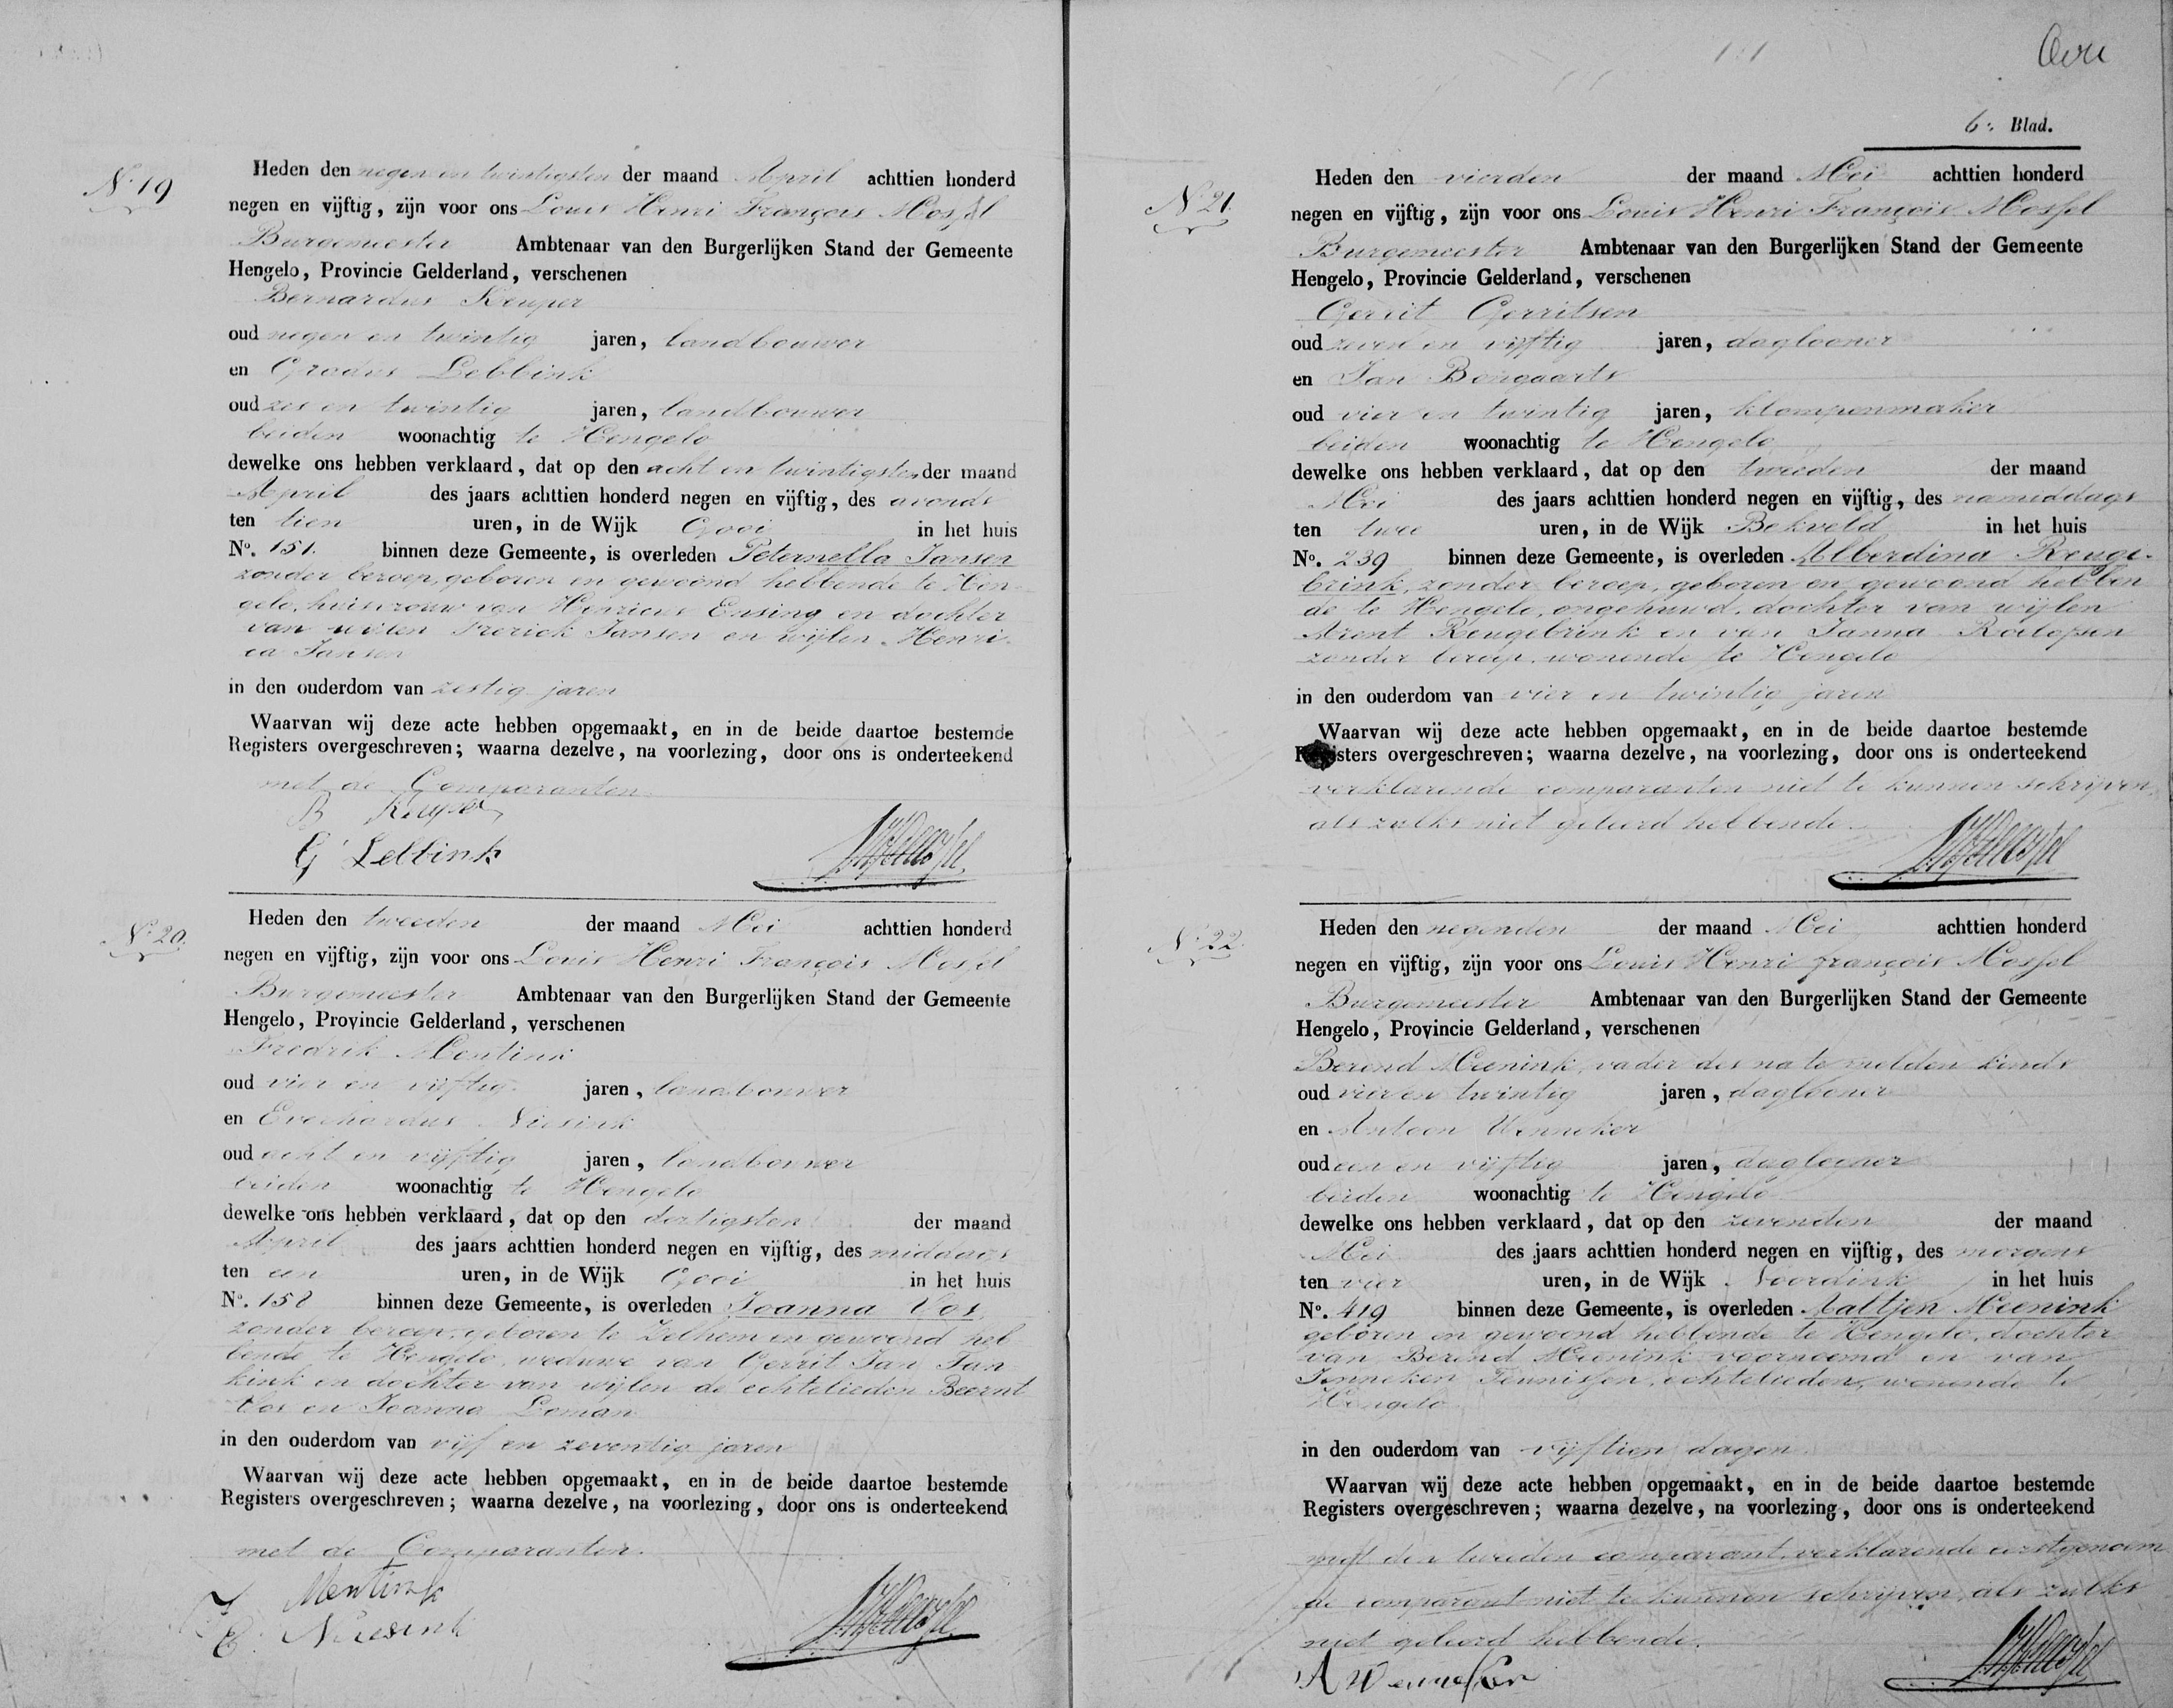 N. 19
Heden den negen en twintigsten der maand April achttien honderd
negen en vijftig, zijn voor ons Louis Henri François Mossel
Burgemeester Ambtenaar van den Burgerlijken Stand der Gemeente
Hengelo, Provincie Gelderland, verschenen
Bernardus Keuper
oud negen en twintig jaren, landbouwer
en Gradus Lebbink
oud zes en twintig jaren, landbouwer
beiden woonachtig te Hengelo
dewelke ons hebben verklaard, dat op den acht en twintigsten der maand
April des jaars achttien honderd negen en vijftig, des avonds
ten tien uren, in de Wijk Gooi in het huis
No. 151. binnen deze Gemeente, is overleden Peternella Jansen
zonder beroep, geboren en gewoond hebbende te Hen-
gelo, huisvrouw van Henricus Ensing en dochter
van wijlen Frerick Jansen en wijlen Henri-
ca Jansen
in den ouderdom van zestig jaren
Waarvan wij deze acte hebben opgemaakt, en in de beide daartoe bestemde
Registers overgeschreven; waarna dezelve, na voorlezing, door ons is onderteekend
met de Comparanten.
B Keuper
G Lebbink
N. 20.
Heden den tweeden der maand Mei achttien honderd
negen en vijftig, zijn voor ons Louis Henri François Mossel
Burgemeester Ambtenaar van den Burgerlijken Stand der Gemeente
Hengelo, Provincie Gelderland, verschenen
Fredrik Mentink
oud vier en vijftig jaren, landbouwer
en Everhardus Niesink
oud acht en vijftig jaren, landbouwer
beiden woonachtig te Hengelo
dewelke ons hebben verklaard, dat op den dertigsten der maand
April des jaars achttien honderd negen en vijftig, des middags
ten een uren, in de Wijk Gooi in het huis
No. 158 binnen deze Gemeente, is overleden Joanna Vos
zonder beroep, geboren te Zelhem en gewoond heb
bende te Hengelo, weduwe van Gerrit Jan Jan
kink en dochter van wijlen de echtelieden Beernt
Vos en Joanna Loman
in den ouderdom van vijf en zeventig jaren
Waarvan wij deze acte hebben opgemaakt, en in de beide daartoe bestemde
Registers overgeschreven; waarna dezelve, na voorlezing, door ons is onderteekend
met de Comparanten.
F Mentink
E. Niesink
6e Blad.
N. 21.
Heden den vierden der maand Mei achttien honderd
negen en vijftig, zijn voor ons Louis Henri François Mossel
Burgemeester Ambtenaar van den Burgerlijken Stand der Gemeente
Hengelo, Provincie Gelderland, verschenen
Gerrit Gerritsen
oud zeven en vijftig jaren, daglooner
en Jan Bongaarts
oud vier en twintig jaren, klompenmaker
beiden woonachtig te Hengelo
dewelke ons hebben verklaard, dat op den tweeden der maand
Mei des jaars achttien honderd negen en vijftig, des namiddags
ten twee uren, in de Wijk Bekveld in het huis
No. 239 binnen deze Gemeente, is overleden Alberdina Reuge-
brink, zonder beroep, geboren en gewoond hebben
de te Hengelo, ongehuwd, dochter van wijlen
Arent Reugebrink en van Janna Roelofsen
zonder beroep wonende te Hengelo
in den ouderdom van vier en twintig jaren
Waarvan wij deze acte hebben opgemaakt, en in de beide daartoe bestemde
Registers overgeschreven; waarna dezelve, na voorlezing, door ons is onderteekend
verklarende comparanten niet te kunnen schrijven,
als zulks niet geleerd hebbende.
N. 22.
Heden den negenden der maand Mei achttien honderd
negen en vijftig, zijn voor ons Louis Henri françois Mossel
Burgemeester Ambtenaar van den Burgerlijken Stand der Gemeente
Hengelo, Provincie Gelderland, verschenen
Berend Meenink, vader des na te melden kinds
oud vier en twintig jaren, daglooner
en Antoon Wenneker
oud een en vijftig jaren, daglooner
beiden woonachtig te Hengelo
dewelke ons hebben verklaard, dat op den zevenden der maand
Mei des jaars achttien honderd negen en vijftig, des morgens
ten vier uren, in de Wijk Noordink in het huis
No. 419 binnen deze Gemeente, is overleden Aaltjen Meenink
geboren en gewoond hebbende te Hengelo, dochter
van Berend Meenink voornoemd en van
Jenneken Teunissen, echtelieden, wonende te
Hengelo
in den ouderdom van vijftien dagen
Waarvan wij deze acte hebben opgemaakt, en in de beide daartoe bestemde
Registers overgeschreven; waarna dezelve, na voorlezing, door ons is onderteekend
met den tweeden comparant verklarende eerstgenoem
de comparant niet te kunnen schrijven, als zulks
niet geleerd hebbende.
A Wenneker